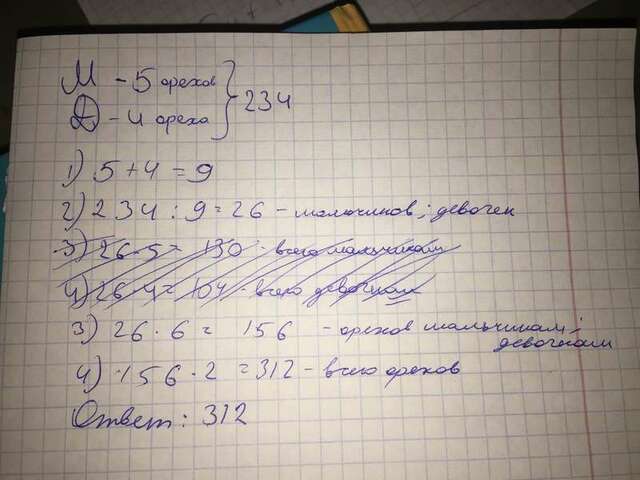 М - 5 орехов
Д - 4 ореха } 234
1) 5 + 4 = 9
2) 234 : 9 = 26 - мальчиков; девочек
3) 26 · 5 = 130 - всего мальчикам
4) 26 · 4 = 104 - всего девочкам
3) 26 · 6 = 156 - орехов мальчикам;
девочкам
4) 156 · 2 = 312 - всего орехов
Ответ: 312